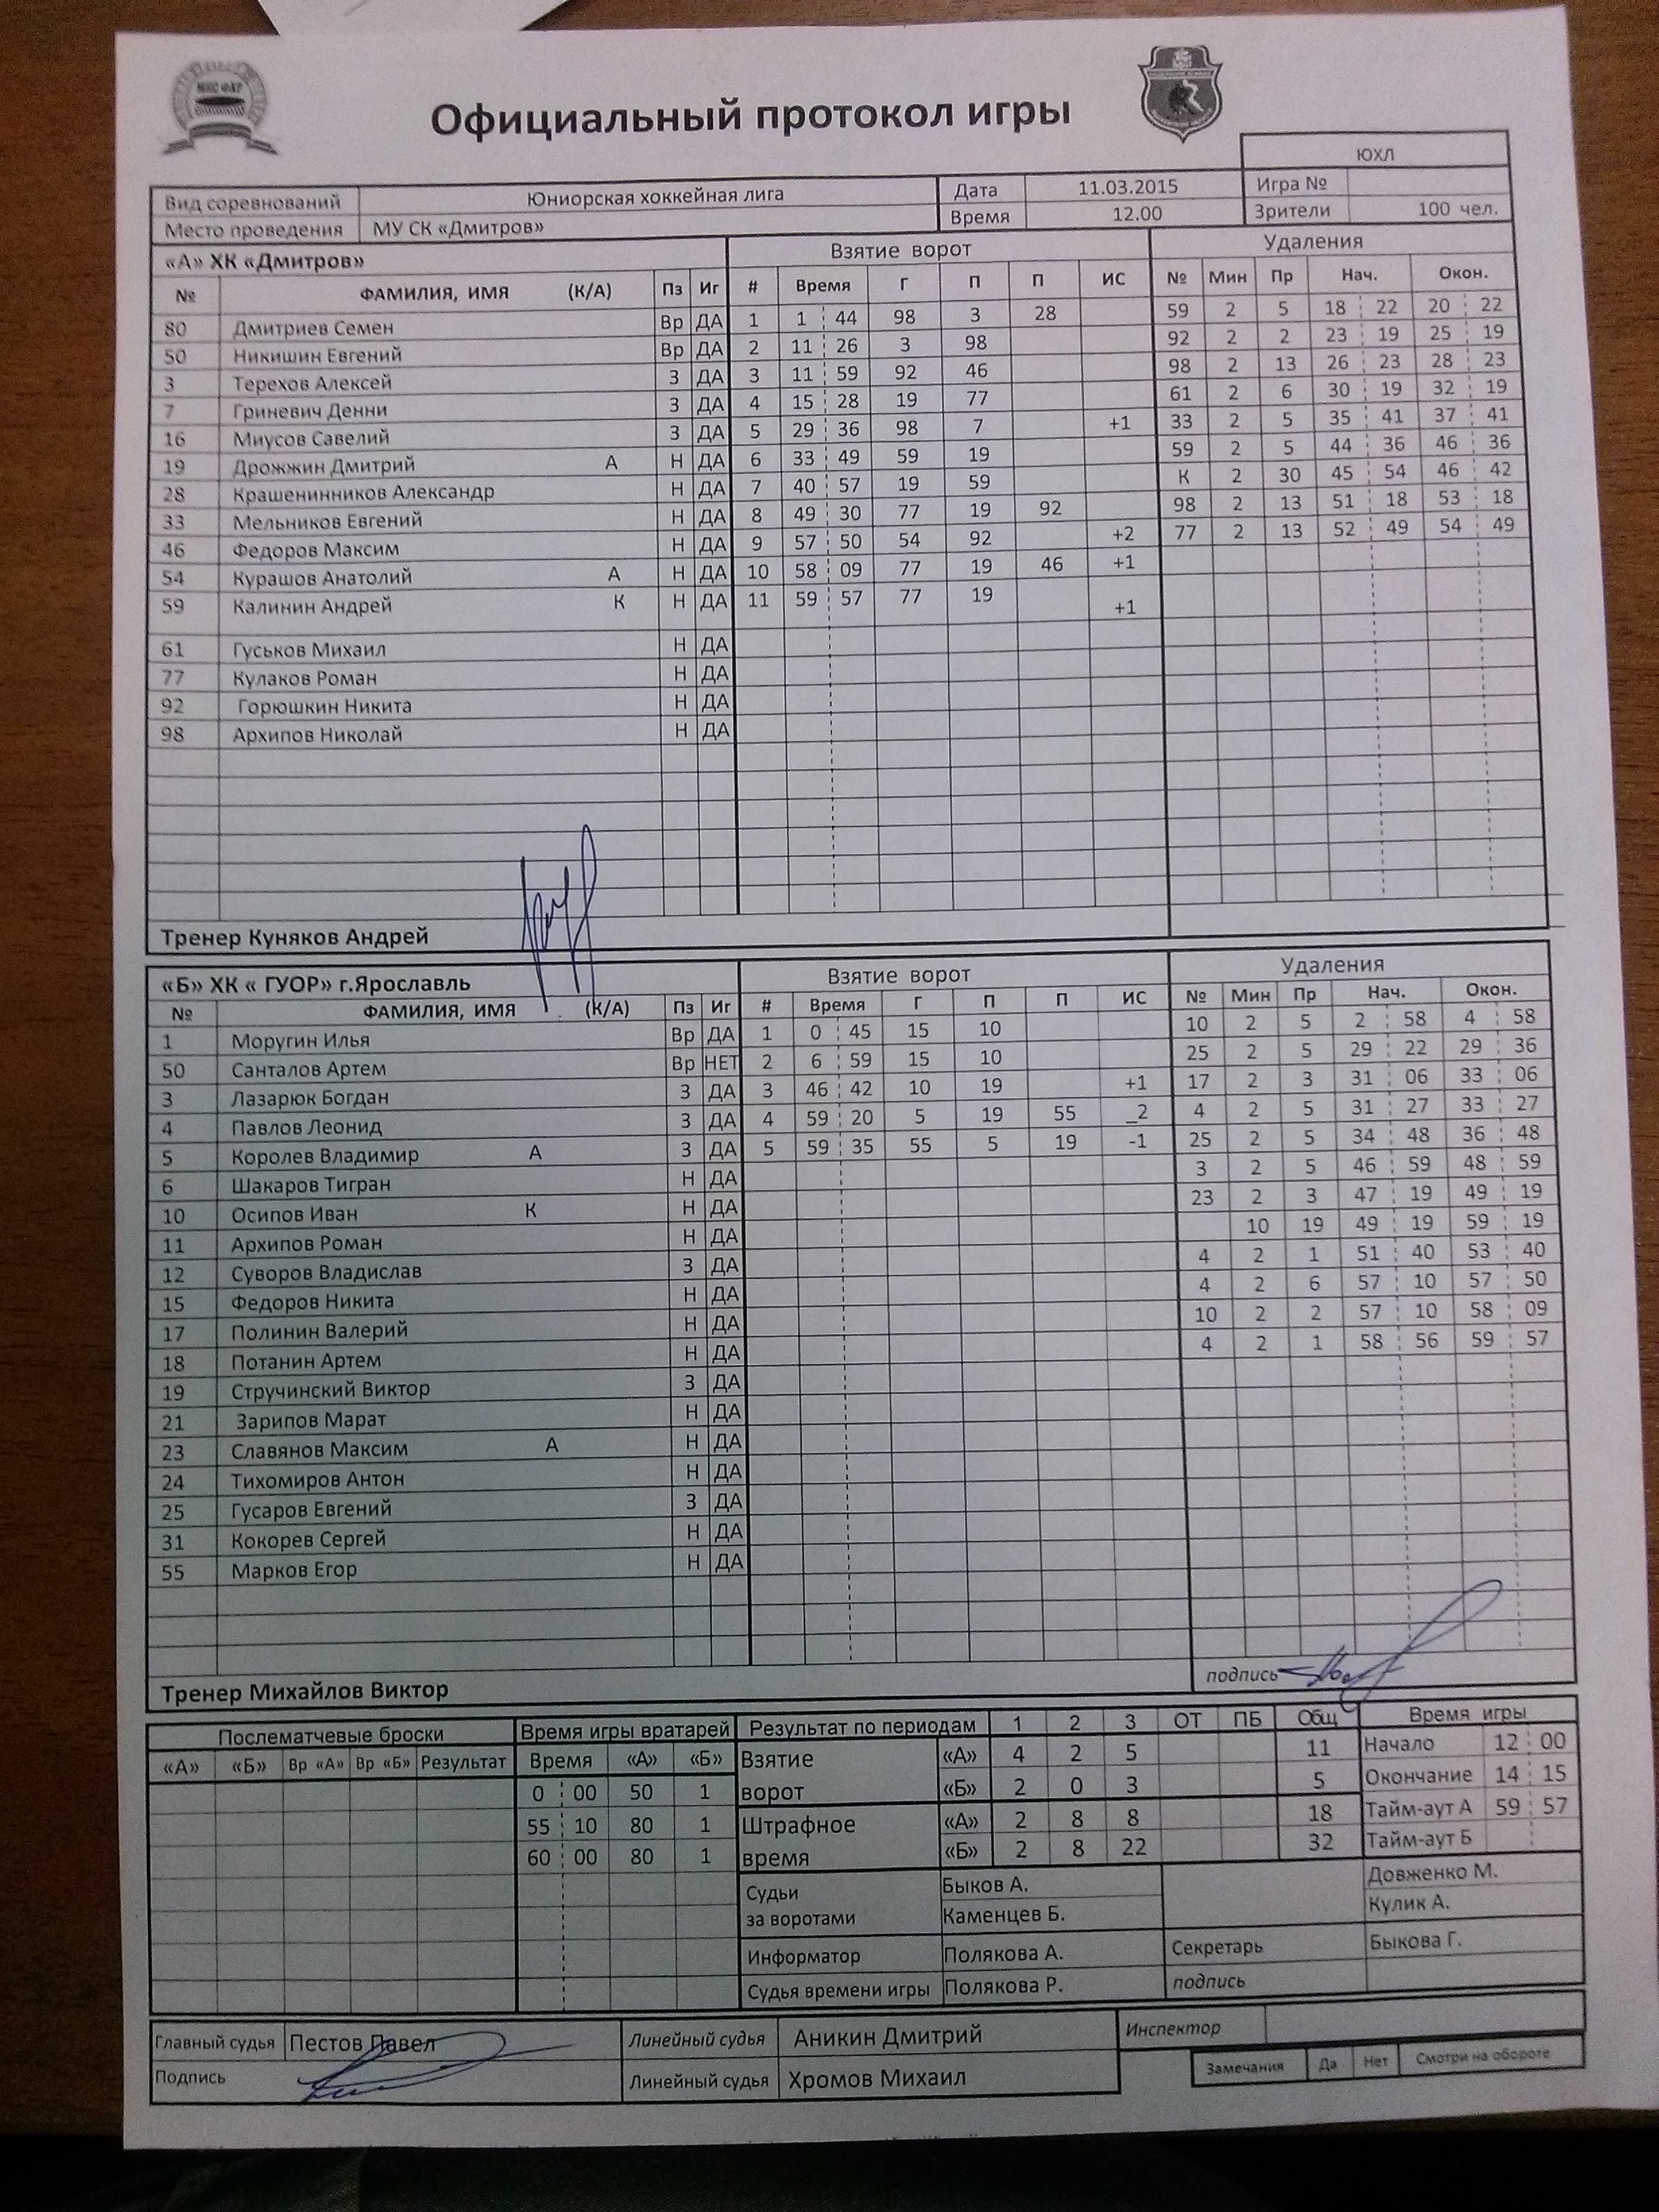 МКС ФХР
Официальный протокол игры
ЮХЛ
Вид соревнований Юниорская хоккейная лига Дата 11.03.2015 Игра №
Место проведения МУ СК «Дмитров» Время 12.00 Зрители 100 чел.
«А» ХК «Дмитров» Взятие ворот Удаления
№ ФАМИЛИЯ, ИМЯ (К/А) Пз Иг # Время Г П П ИС № Мин Пр Нач. Окон.
80 Дмитриев Семен Вр ДА 1 1 44 98 3 28 59 2 5 18 22 20 22
50 Никишин Евгений Вр ДА 2 11 26 3 98 92 2 2 23 19 25 19
3 Терехов Алексей З ДА 3 11 59 92 46 98 2 13 26 23 28 23
7 Гриневич Денни З ДА 4 15 28 19 77 61 2 6 30 19 32 19
16 Миусов Савелий З ДА 5 29 36 98 7 +1 33 2 5 35 41 37 41
19 Дрожжин Дмитрий А Н ДА 6 33 49 59 19 59 2 5 44 36 46 36
28 Крашенинников Александр Н ДА 7 40 57 19 59 К 2 30 45 54 46 42
33 Мельников Евгений Н ДА 8 49 30 77 19 92 98 2 13 51 18 53 18
46 Федоров Максим Н ДА 9 57 50 54 92 +2 77 2 13 52 49 54 49
54 Курашов Анатолий А Н ДА 10 58 09 77 19 46 +1
59 Калинин Андрей К Н ДА 11 59 57 77 19 +1
61 Гуськов Михаил Н ДА
77 Кулаков Роман Н ДА
92 Горюшкин Никита Н ДА
98 Архипов Николай Н ДА
Тренер Куняков Андрей
«Б» ХК « ГУОР» г.Ярославль Взятие ворот Удаления
№ ФАМИЛИЯ, ИМЯ (К/А) Пз Иг # Время Г П П ИС № Мин Пр Нач. Окон.
1 Моругин Илья Вр ДА 1 0 45 15 10 10 2 5 2 58 4 58
50 Санталов Артем Вр НЕТ 2 6 59 15 10 25 2 5 29 22 29 36
3 Лазарюк Богдан З ДА 3 46 42 10 19 +1 17 2 3 31 06 33 06
4 Павлов Леонид З ДА 4 59 20 5 19 55 _2 4 2 5 31 27 33 27
5 Королев Владимир А З ДА 5 59 35 55 5 19 -1 25 2 5 34 48 36 48
6 Шакаров Тигран Н ДА 3 2 5 46 59 48 59
10 Осипов Иван К Н ДА 23 2 3 47 19 49 19
11 Архипов Роман Н ДА 10 19 49 19 59 19
12 Суворов Владислав З ДА 4 2 1 51 40 53 40
15 Федоров Никита Н ДА 4 2 6 57 10 57 50
17 Полинин Валерий Н ДА 10 2 2 57 10 58 09
18 Потанин Артем Н ДА 4 2 1 58 56 59 57
19 Стручинский Виктор З ДА
21 Зарипов Марат Н ДА
23 Славянов Максим А Н ДА
24 Тихомиров Антон Н ДА
25 Гусаров Евгений З ДА
31 Кокорев Сергей Н ДА
55 Марков Егор Н ДА
Тренер Михайлов Виктор подпись
Послематчевые броски Время игры вратарей Результат по периодам 1 2 3 ОТ ПБ Общ Время игры
«А» «Б» Вр «А» Вр «Б» Результат Время «А» «Б» Взятие «А» 4 2 5 11 Начало 12 00
0 00 50 1 ворот «Б» 2 0 3 5 Окончание 14 15
55 10 80 1 Штрафное «А» 2 8 8 18 Тайм-аут А 59 57
60 00 80 1 время «Б» 2 8 22 32 Тайм-аут Б
Судьи Быков А. Довженко М.
за воротами Каменцев Б. Кулик А.
Информатор Полякова А. Секретарь Быкова Г.
Судья времени игры Полякова Р. подпись
Главный судья Пестов Павел Линейный судья Аникин Дмитрий Инспектор
Подпись Линейный судья Хромов Михаил Замечания Да Нет Смотри на обороте